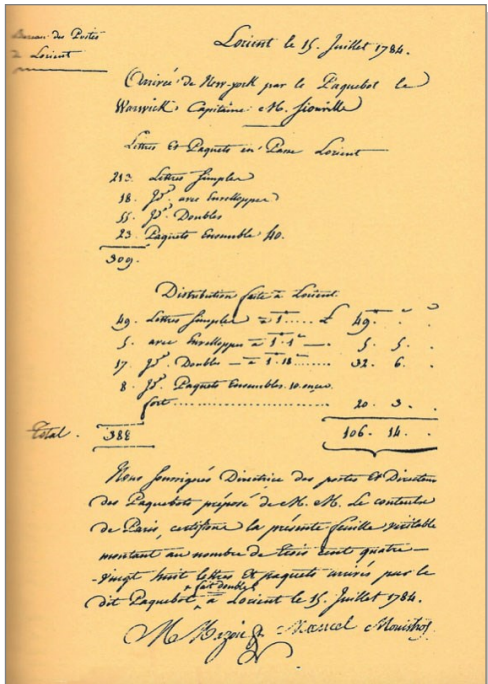 Bureau des Postes
de Lorient
Lorient le 15. Juillet 1784.
Arrivée de New-york par le Paquebot le
Warwick, Capitaine M. Sionville
Lettres Et Paquets en Passe Lorient
213. Lettres simples
18. Jd. avec Envelloppes
55. Jd. Doubles
23. Paquets Ensemble 40.
309.
Distribution faite à Lorient.
49. Lettres simples à 1 ..... £ 49. " "
5. avec Envelloppes à 1. 1 — . 5. 5.
17. Jd. Doubles — à 1. 18 ....... 32. 6.
8. Jd. Paquets Ensembles. 10. onces
fort ................................. 20. 3.
Total. 388 106. 14.
Nous soussignés Directrice des postes Et Directeur
des Paquebots préposé de M. M. Le controleur
de Paris, certifions la présente feuille véritable
montant au nombre de trois cent quatre —
-vingt huit lettres Et paquets arrivés par le
dit Paquebot, fait double à Lorient le 15. Juillet 1784.